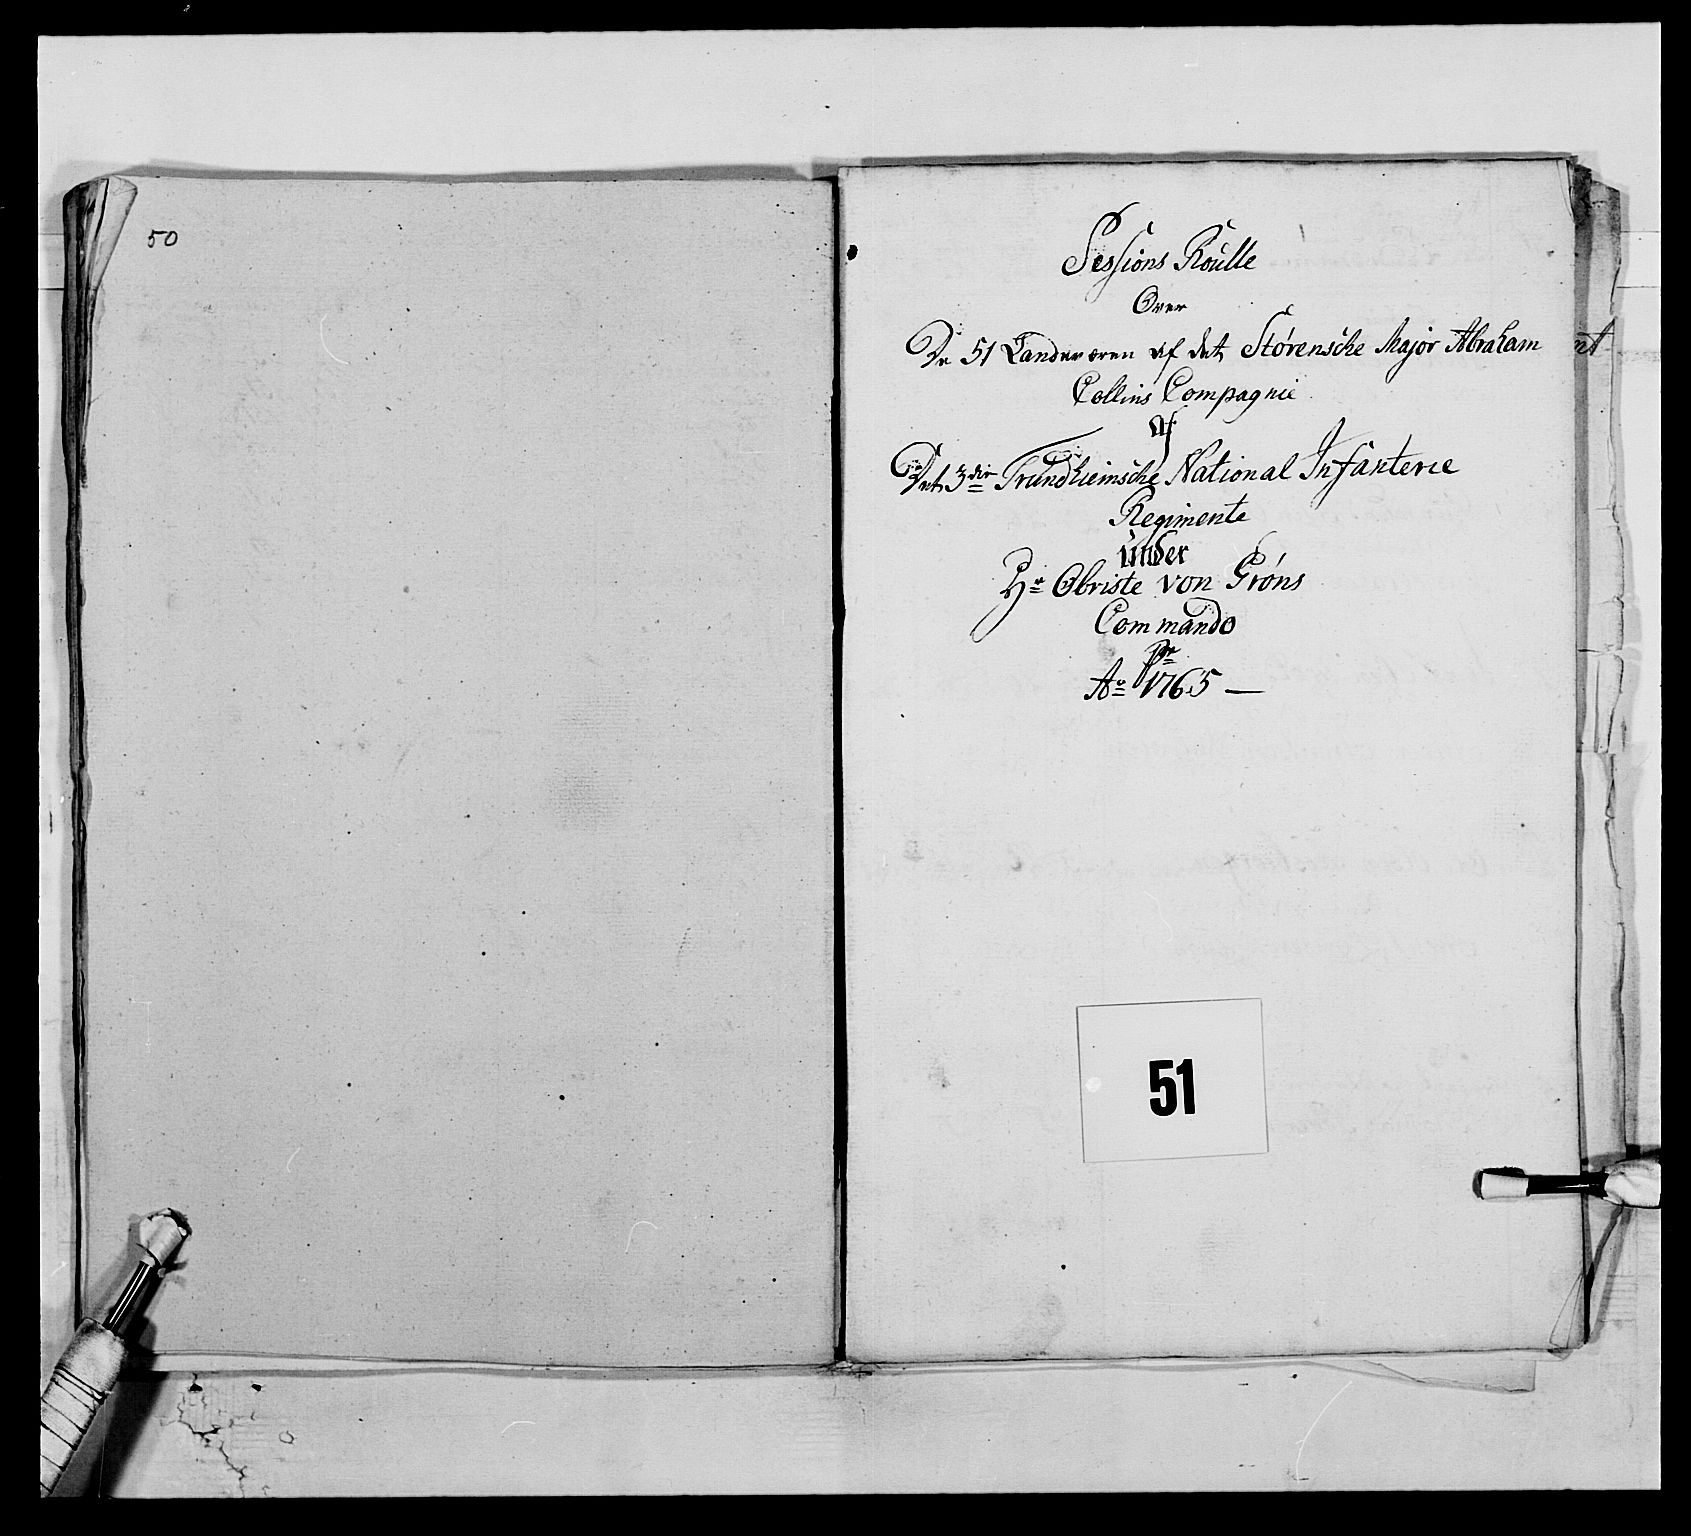 50
Sessions Roulle
Over
De 51 Landeværn af det Størensche Major Abraham
Collins Compagnie
af
Det 3die Trundhiemsche National Infanterie
Regimente
under
Hr Obriste von Grøns
Commando
pr
Ao 1765 —
51